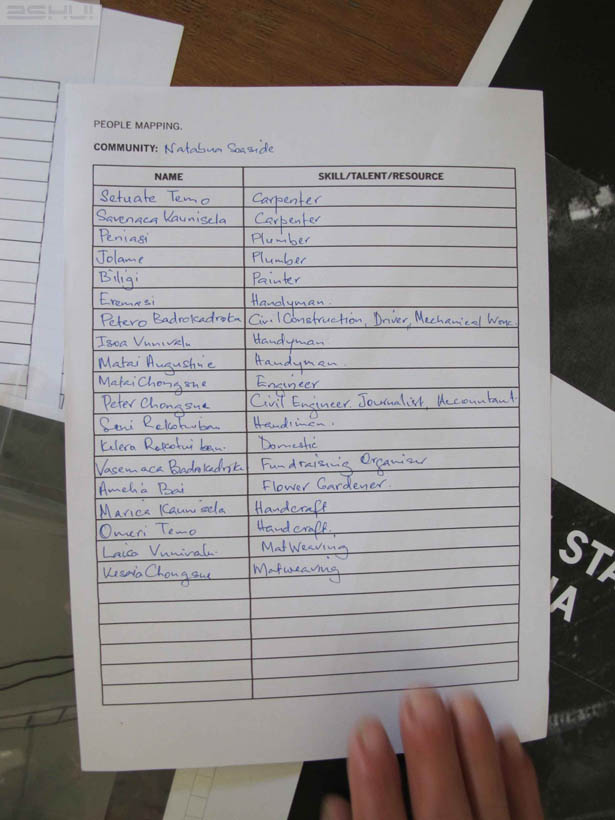 PEOPLE MAPPING.
COMMUNITY: Natabua Seaside
NAME SKILL/TALENT/RESOURCE
Setuate Temo Carpenter
Savenaca Kaunisela Carpenter
Peniasi Plumber
Jolame Plumber
Biligi Painter
Eremasi Handyman.
Petero Badrokadroka Civil Construction, Driver, Mechanical Work.
Isoa Vunivalu Handyman.
Matai Augustine Handyman.
Matai Chongsue Engineer
Peter Chongsue Civil Engineer. Journalist, Accountant
Seni Handiman.
Domestic
Vasemaca Badrokadroka Fundraising Organiser
Amelia Bai Flower Gardener.
Marica Kaunisela Handcraft
Omeri Temo Handcraft.
Vunivalu. Mat Weaving
Chongsue Matweaving
STA
IA